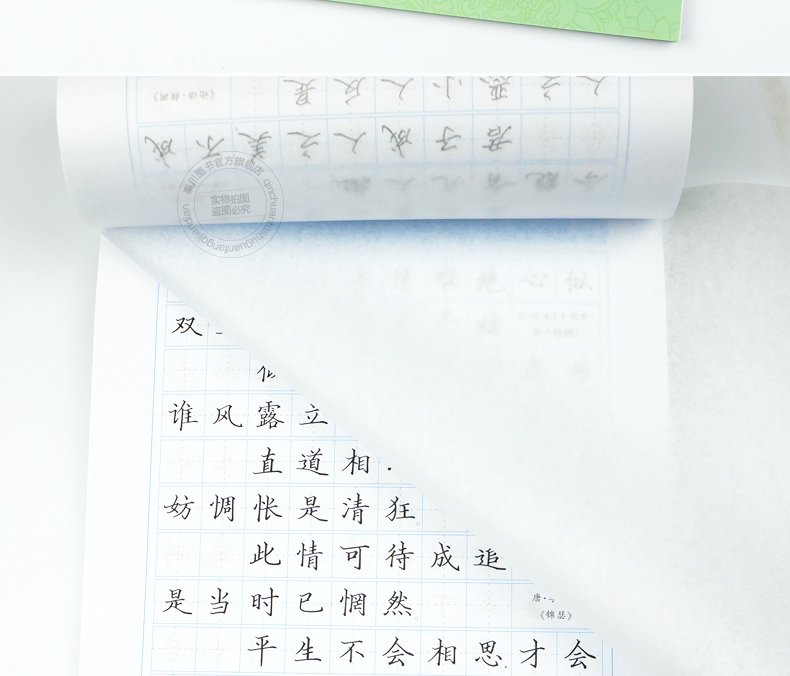 君子成人之美不成
人之恶小人反是
《论语·颜渊》
秦川图书官方旗舰店
qinchuantushuguanfangqijiandian
实物拍图
盗图必究
双
谁风露立
直道相
妨惆怅是清狂
此情可待成追
是当时已惘然
唐·
《锦瑟》
平生不会相思才会